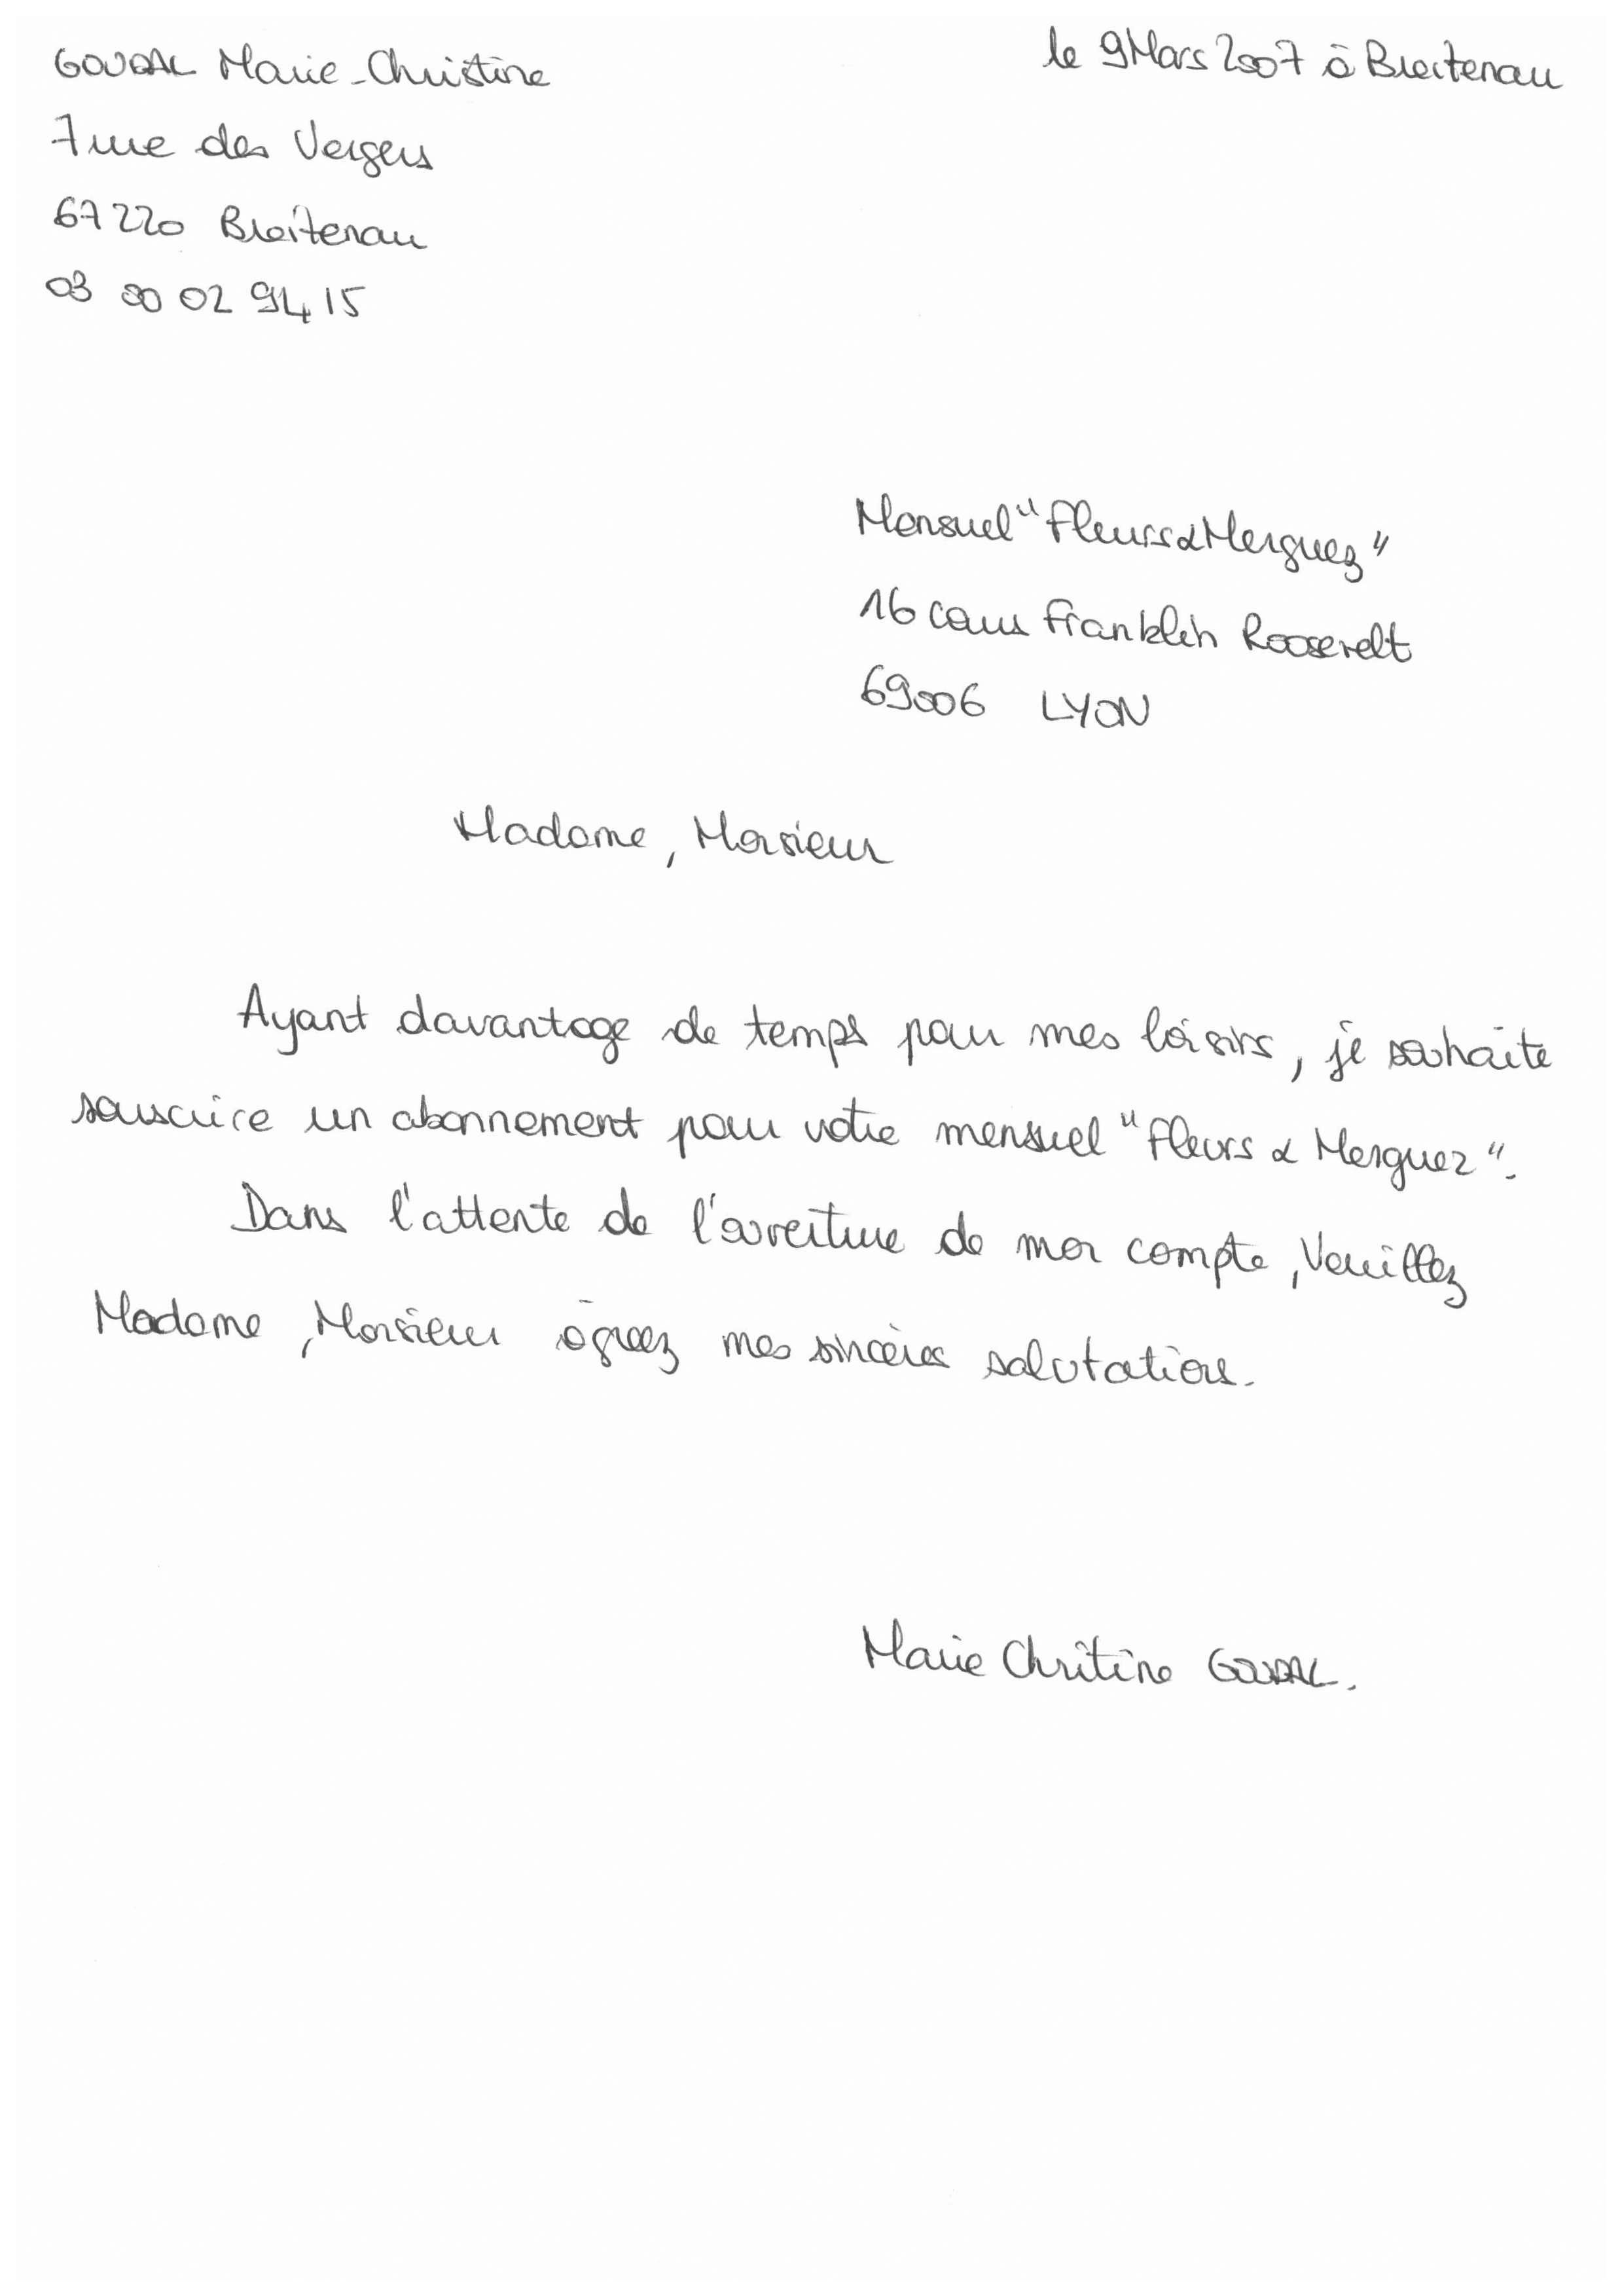 GOUDAL Marie-Christine
le 9 Mars 2007 à Breitenau
7 rue des Vergers
67220 Breitenau
03 00 02 94 15
Mensuel "Fleurs & Merguez"
16 cours Franklin Roosevelt
69006 LYON
Madame, Monsieur
Ayant davantage de temps pour mes loisirs, je souhaite
souscrire un abonnement pour votre mensuel "Fleurs & Merguez".
Dans l'attente de l'ouverture de mon compte, Veuillez
Madame, Monsieur agréez mes sincères salutations.
Marie Chritine GOUDAL.